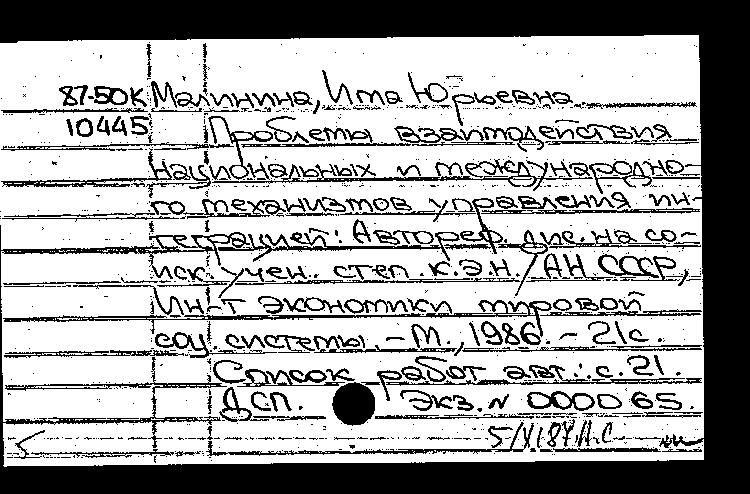 87-50К Малинина, Има Юрьевна
10445 Проблемы взаимодействия
национальных и международно-
го механизмов управления ин-
теграцией: Автореф. дис. на со-
иск. учен. степ. к.э.н. / АН СССР,
Ин-т экономики мировой
соц. системы. - М., 1986. - 21с.
Список работ авт.: с. 21.
ДСП. Экз. № 000065.